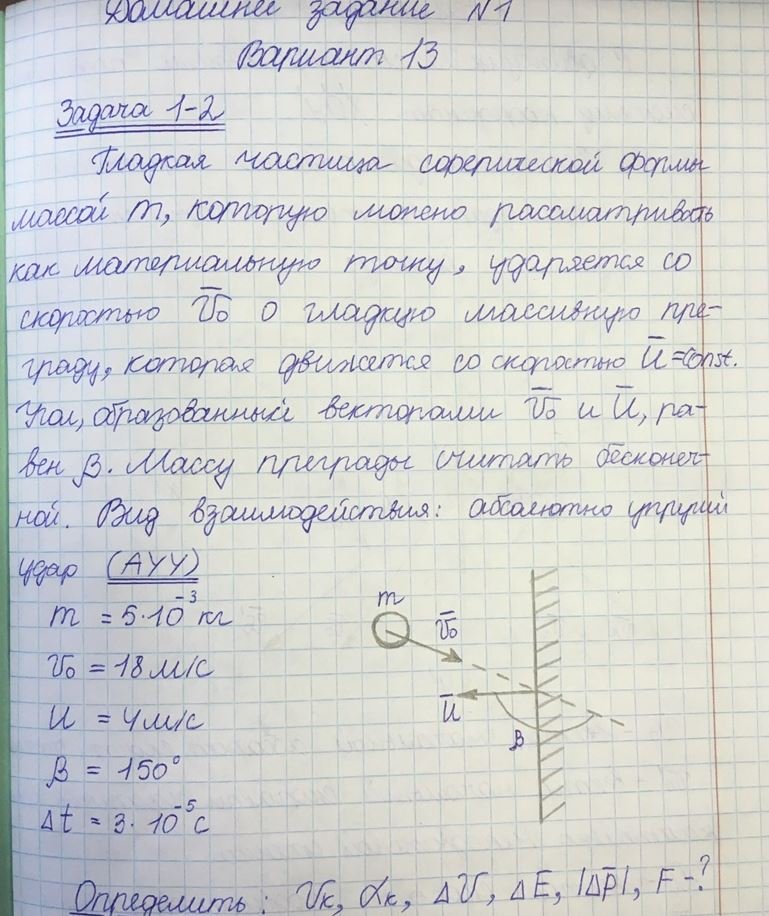 Домашнее задание №1
Вариант 13
Задача 1-2
Гладкая частица сферической формы
массой m, которую можно рассматривать
как материальную точку, ударяется со
скоростью V̄₀ о гладкую массивную пре-
граду, которая движется со скоростью ū=const.
Угол, образованный векторами V̄₀ и ū, ра-
вен β. Массу преграды считать бесконеч-
ной. Вид взаимодействия: абсолютно упругий
удар (АУУ)
m = 5·10⁻³ кг
V₀ = 18 м/с
U = 4 м/с
β = 150°
Δt = 3·10⁻⁵ с
m
V̄₀
ū
β
Определить: Vк, αк, ΔV, ΔE, |Δp̄|, F -?